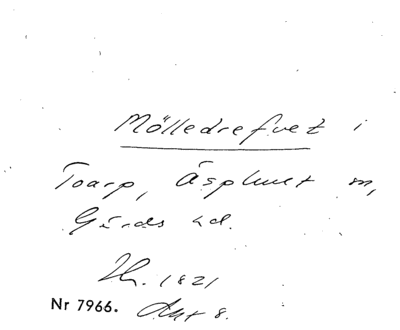 Mölledrefvet i
Toarp, Äsphult m,
Gärds hd.
Th. 1821
Nr 7966. Akt 8.